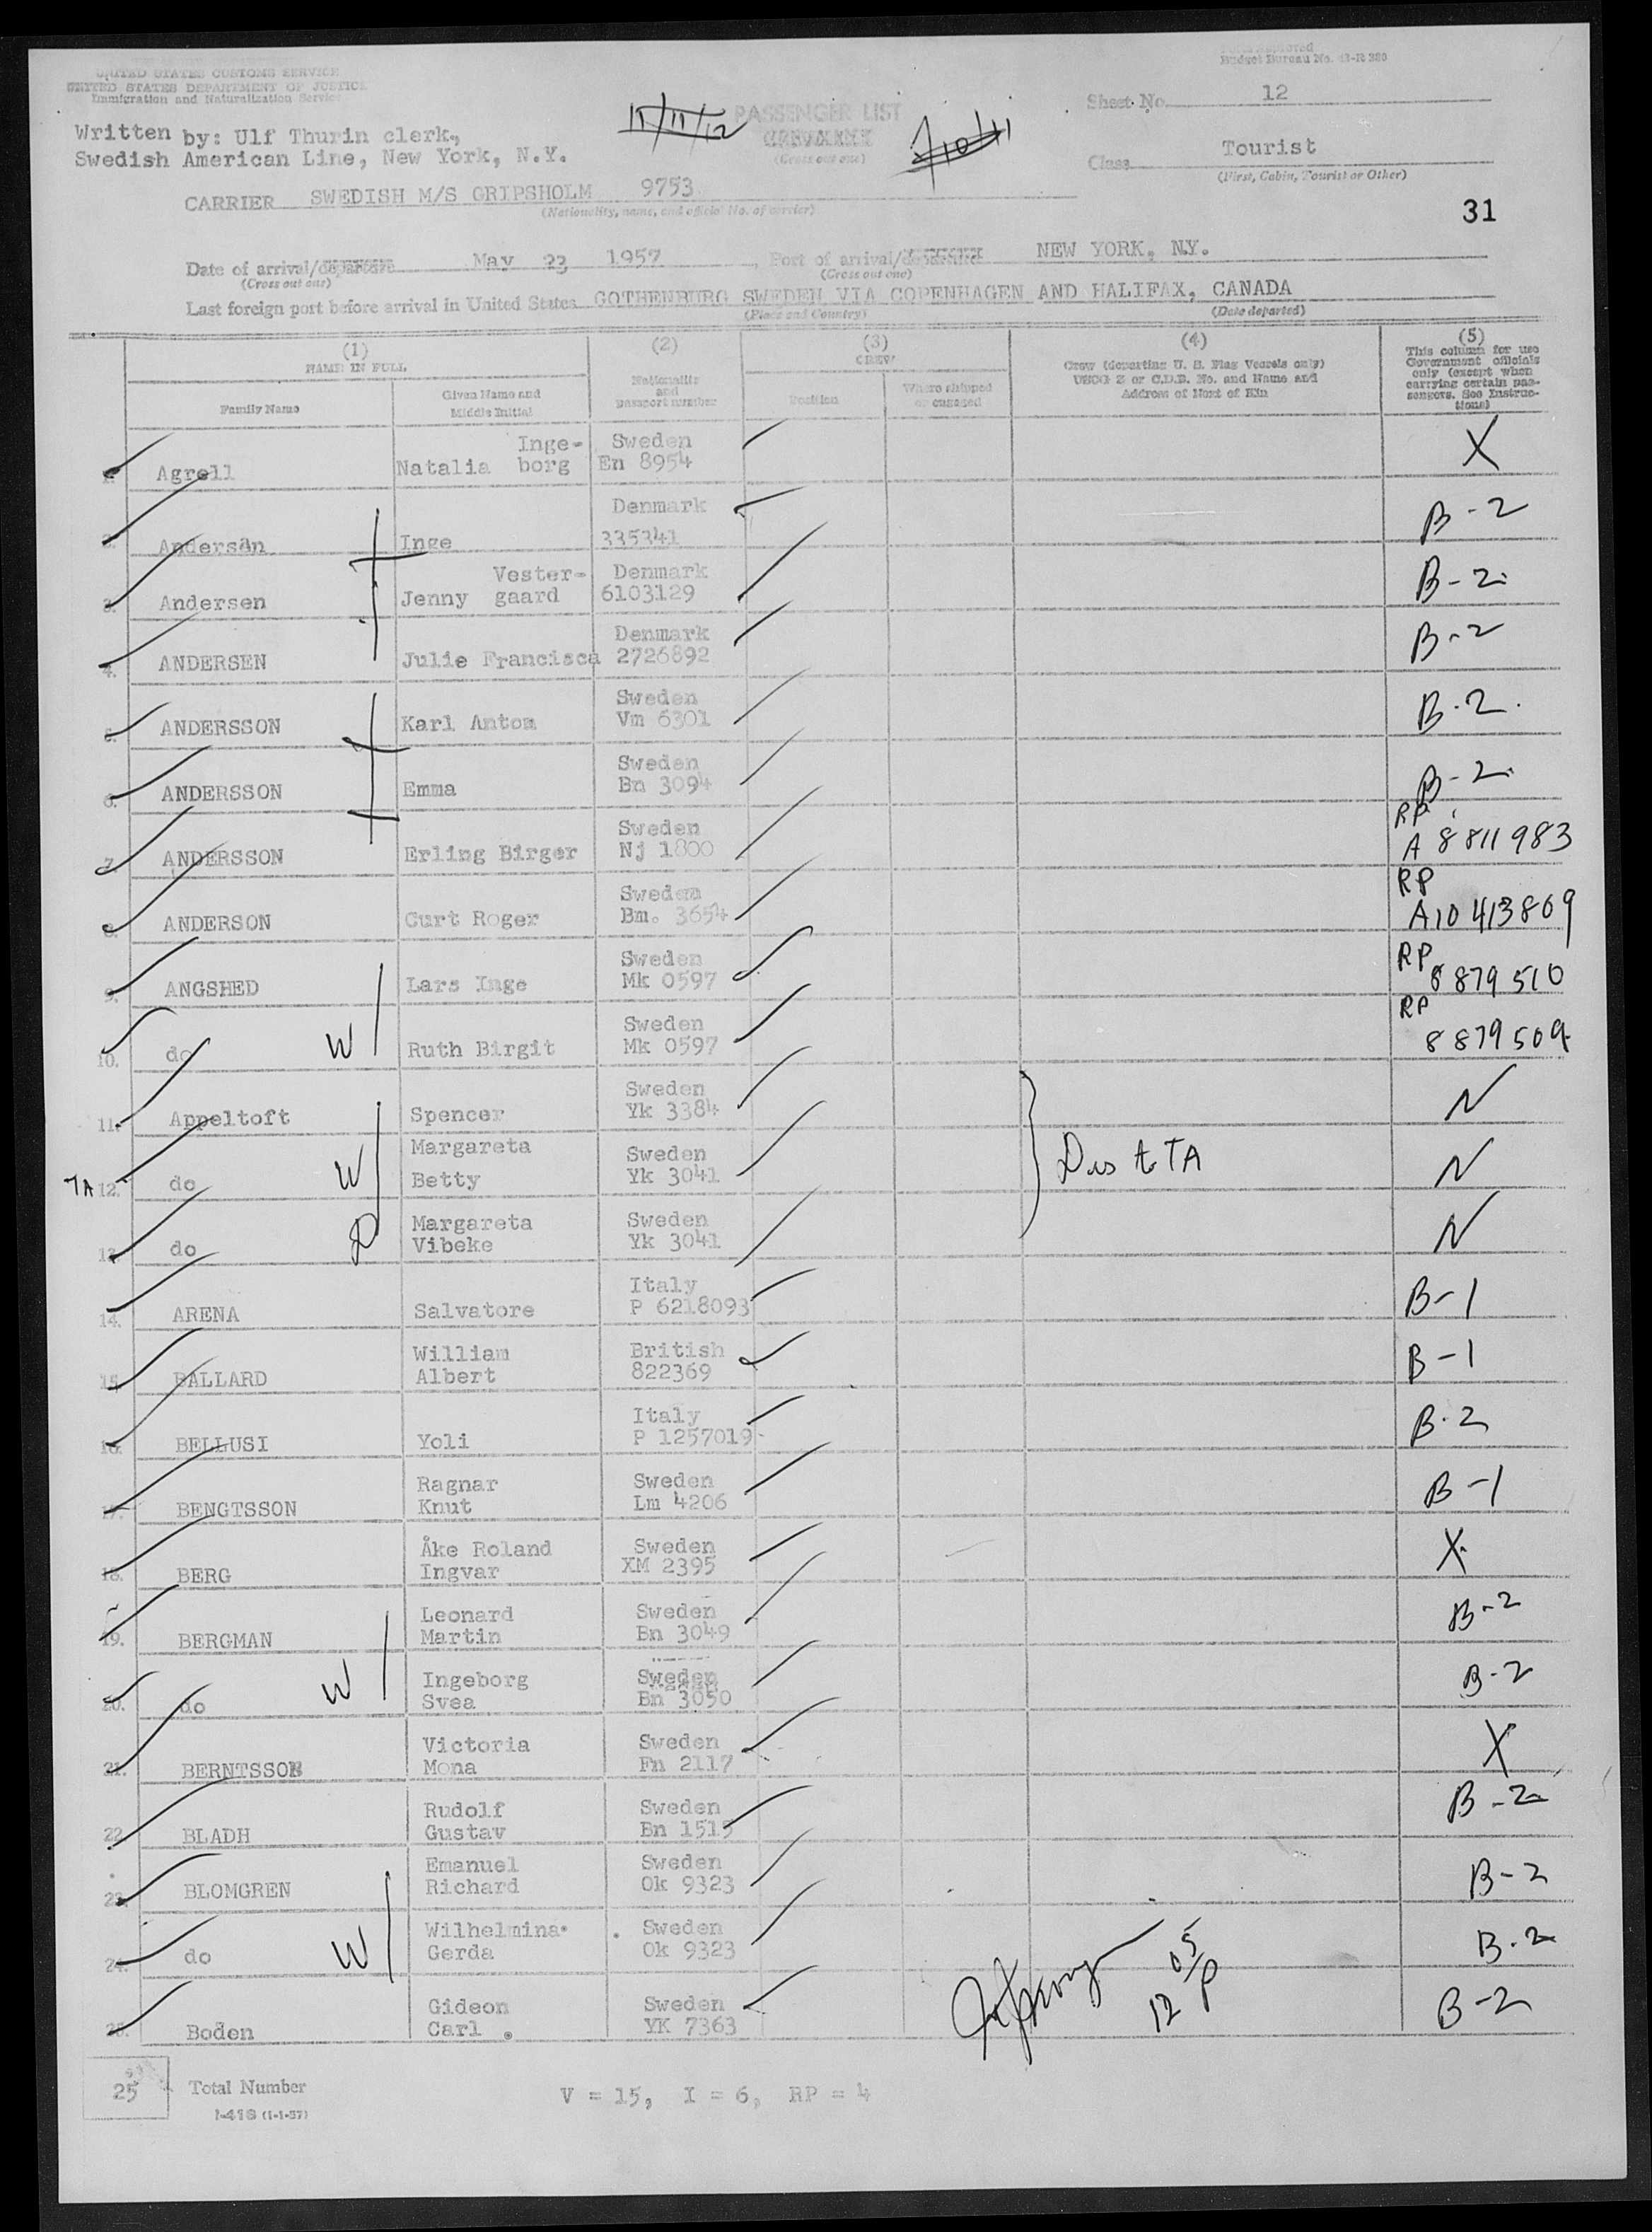 UNITED STATES CUSTOMS SERVICE
UNITED STATES DEPARTMENT OF JUSTICE
Immigration and Naturalization Service
Form Approved
Budget Bureau No. 43-R 380
Written by: Ulf Thurin clerk,
Swedish American Line, New York, N.Y.
11/11/12
PASSENGER LIST
(Cross out one)
7/10/11
Sheet No. 12
Class Tourist
(First, Cabin, Tourist or Other)
CARRIER SWEDISH M/S GRIPSHOLM 9753
(Nationality, name, and official No. of carrier)
31
Date of arrival/departure May 23 1957, Port of arrival/departure NEW YORK, N.Y.
(Cross out one) (Cross out one)
Last foreign port before arrival in United States GOTHENBURG SWEDEN VIA COPENHAGEN AND HALIFAX, CANADA
(Place and Country) (Date departed)
(1) NAME IN FULL
Family Name
Given Name and Middle Initial
(2) Nationality and passport number
(3) CREW
Position
Where shipped or engaged
(4) Crew (departing U. S. Flag Vessels only) USCG Z or C.D.B. No. and Name and Address of Next of Kin
(5) This column for use Government officials only (except when carrying certain passengers. See Instructions)
1. Agrell Natalia Inge-borg Sweden En 8954 X
2. Andersen Inge Denmark 335341 B-2
3. Andersen Jenny Vester-gaard Denmark 6103129 B-2
4. ANDERSEN Julie Francisca Denmark 2726892 B-2
5. ANDERSSON Karl Anton Sweden Vm 6301 B-2
6. ANDERSSON Emma Sweden Bn 3094 B-2
7. ANDERSSON Erling Birger Sweden Nj 1800 RP A 8811983
8. ANDERSON Curt Roger Sweden Bm. 3654 RP A10 413809
9. ANGSHED Lars Inge Sweden Mk 0597 RP 8879510
10. do W Ruth Birgit Sweden Mk 0597 RP 8879509
11. Appeltoft Spencer Sweden Yk 3384 N
TA 12. do W Margareta Betty Sweden Yk 3041 Dis to TA N
13. do D Margareta Vibeke Sweden Yk 3041 N
14. ARENA Salvatore Italy P 6218093 B-1
15. BALLARD William Albert British 822369 B-1
16. BELLUSI Yoli Italy P 1257019 B-2
17. BENGTSSON Ragnar Knut Sweden Lm 4206 B-1
18. BERG Åke Roland Ingvar Sweden XM 2395 X
19. BERGMAN Leonard Martin Sweden Bn 3049 B-2
20. do W Ingeborg Svea Sweden Bn 3050 B-2
21. BERNTSSON Victoria Mona Sweden Fn 2117 X
22. BLADH Rudolf Gustav Sweden Bn 1515 B-2
23. BLOMGREN Emanuel Richard Sweden Ok 9323 B-2
24. do W Wilhelmina Gerda Sweden Ok 9323 B-2
25. Boden Gideon Carl Sweden YK 7363 B-2
12 05/P
25 Total Number
I-418 (1-1-57)
V = 15, I = 6, RP = 4